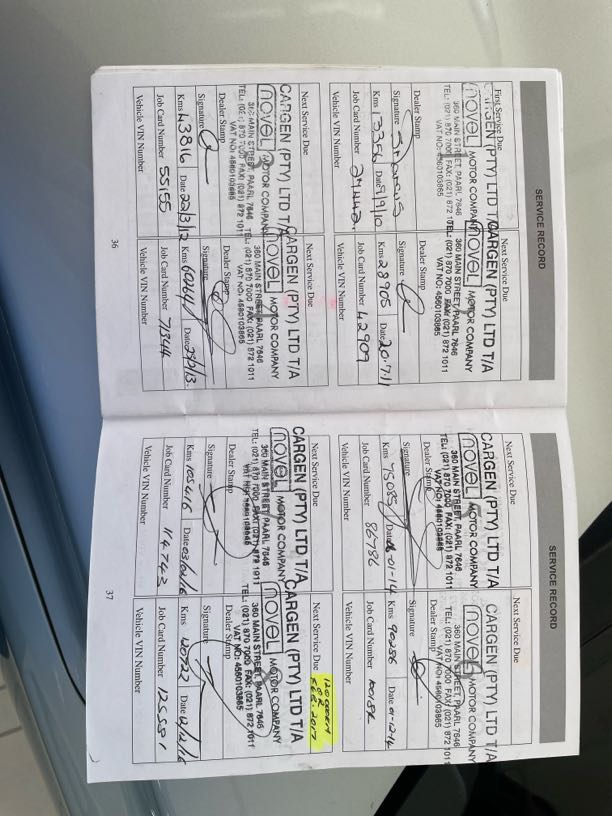 SERVICE RECORD
First Service Due
CARGEN (PTY) LTD T/A
novel MOTOR COMPANY
360 MAIN STREET, PAARL 7646
TEL: (021) 870 7000 FAX: (021) 872 1011
Dealer Stamp
Signature
Kms 13356 Date 9/9/10
Job Card Number
Vehicle VIN Number
Next Service Due
CARGEN (PTY) LTD T/A
novel MOTOR COMPANY
360 MAIN STREET, PAARL 7646
TEL: (021) 870 7000 FAX: (021) 872 1011
VAT NO: 4580103865
Dealer Stamp
Signature
Kms 28905 Date 20.7.11
Job Card Number 42909
Vehicle VIN Number
Next Service Due
CARGEN (PTY) LTD T/A
novel MOTOR COMPANY
360 MAIN STREET, PAARL 7646
TEL: (021) 870 7000 FAX: (021) 872 1011
VAT NO: 4580103865
Dealer Stamp
Signature
Kms 43816 Date 22/3/12
Job Card Number 55155
Vehicle VIN Number
Next Service Due
CARGEN (PTY) LTD T/A
novel MOTOR COMPANY
360 MAIN STREET, PAARL 7646
TEL: (021) 870 7000 FAX: (021) 872 1011
VAT NO: 4580103865
Dealer Stamp
Signature
Kms Date
Job Card Number 71344
Vehicle VIN Number
36
SERVICE RECORD
Next Service Due
CARGEN (PTY) LTD T/A
novel MOTOR COMPANY
360 MAIN STREET, PAARL 7646
TEL: (021) 870 7000 FAX: (021) 872 1011
VAT NO: 4580103865
Dealer Stamp
Signature
Kms 75085 Date 01-14
Job Card Number 86786
Vehicle VIN Number
Next Service Due
CARGEN (PTY) LTD T/A
novel MOTOR COMPANY
360 MAIN STREET, PAARL 7646
TEL: (021) 870 7000 FAX: (021) 872 1011
VAT NO: 4580103865
Dealer Stamp
Signature
Kms 90286 Date 01-12-14
Job Card Number
Vehicle VIN Number
Next Service Due
CARGEN (PTY) LTD T/A
novel MOTOR COMPANY
360 MAIN STREET, PAARL 7646
TEL: (021) 870 7000 FAX: (021) 872 1011
VAT NO: 4580103865
Dealer Stamp
Signature
Kms 105416 Date
Job Card Number 114743
Vehicle VIN Number
Next Service Due
120 000KM
OR
FEB. 2017
CARGEN (PTY) LTD T/A
novel MOTOR COMPANY
360 MAIN STREET, PAARL 7646
TEL: (021) 870 7000 FAX: (021) 872 1011
VAT NO: 4580103865
Dealer Stamp
Signature
Kms Date
Job Card Number
Vehicle VIN Number
37